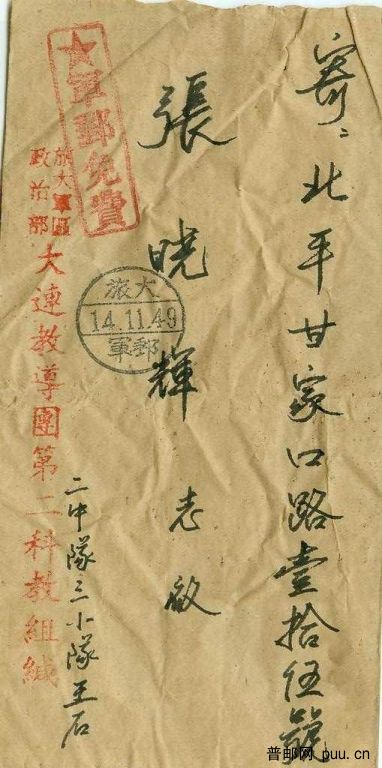 寄：北平甘家口路壹拾伍號
張曉輝 志啟
★軍郵免費
旅大軍區
政治部
大連教導團第二科教組緘
二中隊三小隊王石
旅大
14.11.49
軍郵
普邮网 puu.cn